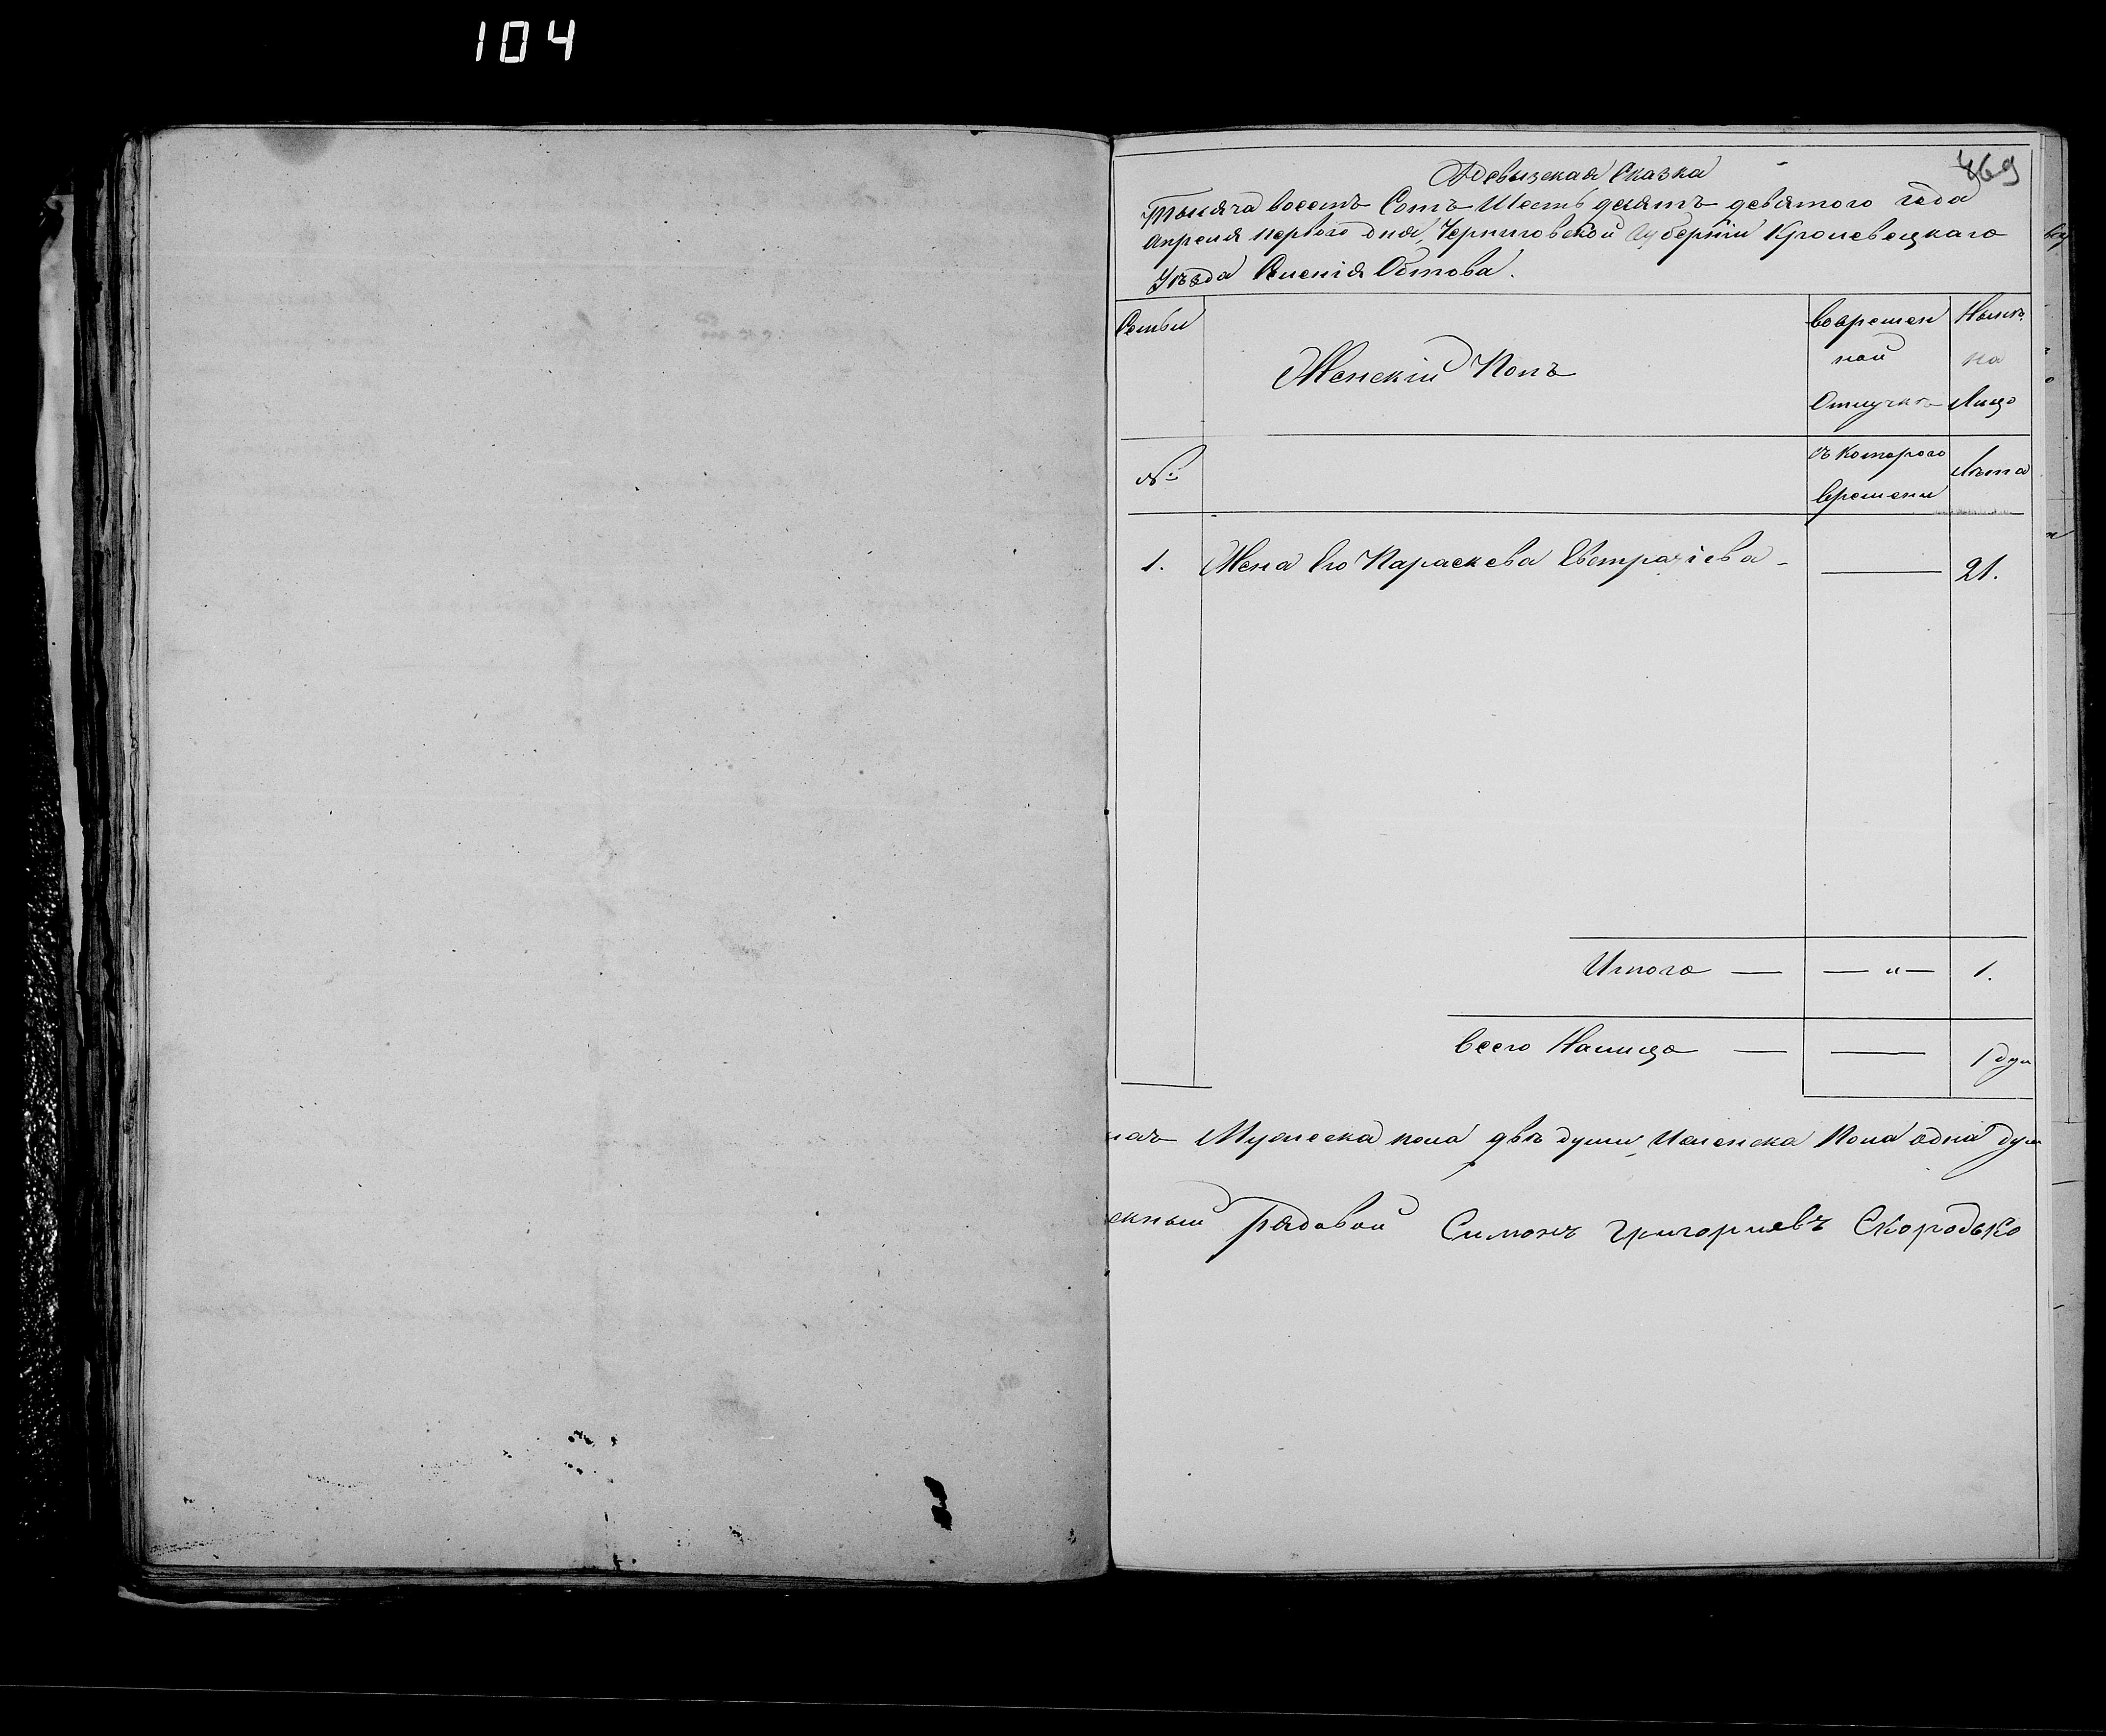 104
469
Ревызская Сказка
Тысяча восемь Сотъ Шесть десятъ девятого года
Апреля первого дня, Черниговской Губернии Кролевецкаго
Уезда Селения Обтова.
Семьи
Женский Полъ
во времен
ной
Отлучке
Налич
на
Лицо
№
съ которого
времени
Лета
1. Жена Его Параскева Евстратиева — 21.
Итого — — „ — 1.
Всего Налицо — — 1 душ
Мужеска пола две души, Женска Пола одна душ
Рядовой Симонъ Григориевъ Скородько